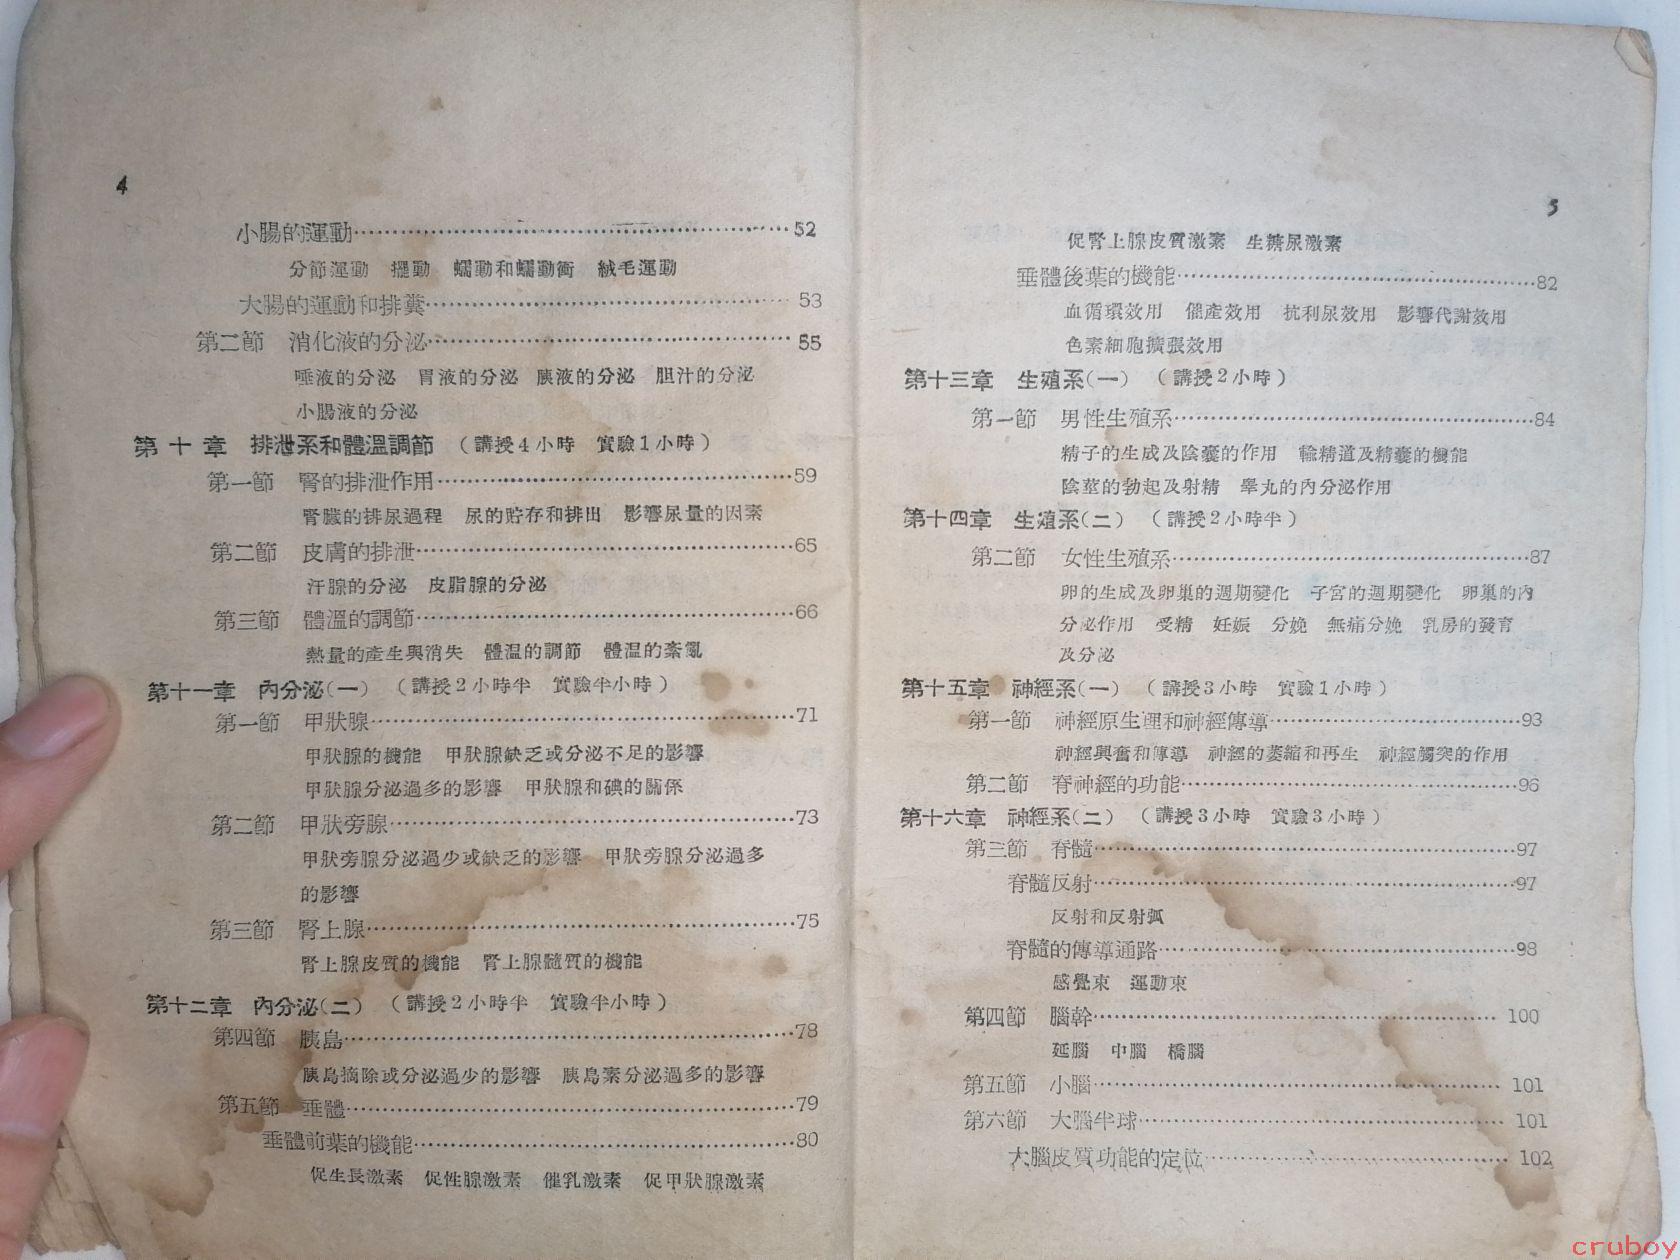 4
小腸的運動……52
分節運動 擺動 蠕動和蠕動衝 絨毛運動
大腸的運動和排糞……53
第二節 消化液的分泌……55
唾液的分泌 胃液的分泌 胰液的分泌 胆汁的分泌
小腸液的分泌
第十章 排泄系和體溫調節 (講授4小時 實驗1小時)
第一節 腎的排泄作用……59
腎臟的排尿過程 尿的貯存和排出 影響尿量的因素
第二節 皮膚的排泄……65
汗腺的分泌 皮脂腺的分泌
第三節 體溫的調節……66
熱量的產生與消失 體溫的調節 體溫的紊亂
第十一章 內分泌(一) (講授2小時半 實驗半小時)
第一節 甲狀腺……71
甲狀腺的機能 甲狀腺缺乏或分泌不足的影響
甲狀腺分泌過多的影響 甲狀腺和碘的關係
第二節 甲狀旁腺……73
甲狀旁腺分泌過少或缺乏的影響 甲狀旁腺分泌過多
的影響
第三節 腎上腺……75
腎上腺皮質的機能 腎上腺髓質的機能
第十二章 內分泌(二) (講授2小時半 實驗半小時)
第四節 胰島……78
胰島摘除或分泌過少的影響 胰島素分泌過多的影響
第五節 垂體……79
垂體前葉的機能……80
促生長激素 促性腺激素 催乳激素 促甲狀腺激素
5
促腎上腺皮質激素 生糖尿激素
垂體後葉的機能……82
血循環效用 催產效用 抗利尿效用 影響代謝效用
色素細胞擴張效用
第十三章 生殖系(一) (講授2小時)
第一節 男性生殖系……84
精子的生成及陰囊的作用 輸精道及精囊的機能
陰莖的勃起及射精 睾丸的內分泌作用
第十四章 生殖系(二) (講授2小時半)
第二節 女性生殖系……87
卵的生成及卵巢的週期變化 子宮的週期變化 卵巢的內
分泌作用 受精 妊娠 分娩 無痛分娩 乳房的發育
及分泌
第十五章 神經系(一) (講授3小時 實驗1小時)
第一節 神經原生理和神經傳導……93
神經興奮和傳導 神經的萎縮和再生 神經觸突的作用
第二節 脊神經的功能……96
第十六章 神經系(二) (講授3小時 實驗3小時)
第三節 脊髓……97
脊髓反射……97
反射和反射弧
脊髓的傳導通路……98
感覺束 運動束
第四節 腦幹……100
延腦 中腦 橋腦
第五節 小腦……101
第六節 大腦半球……101
大腦皮質功能的定位……102
cruboy